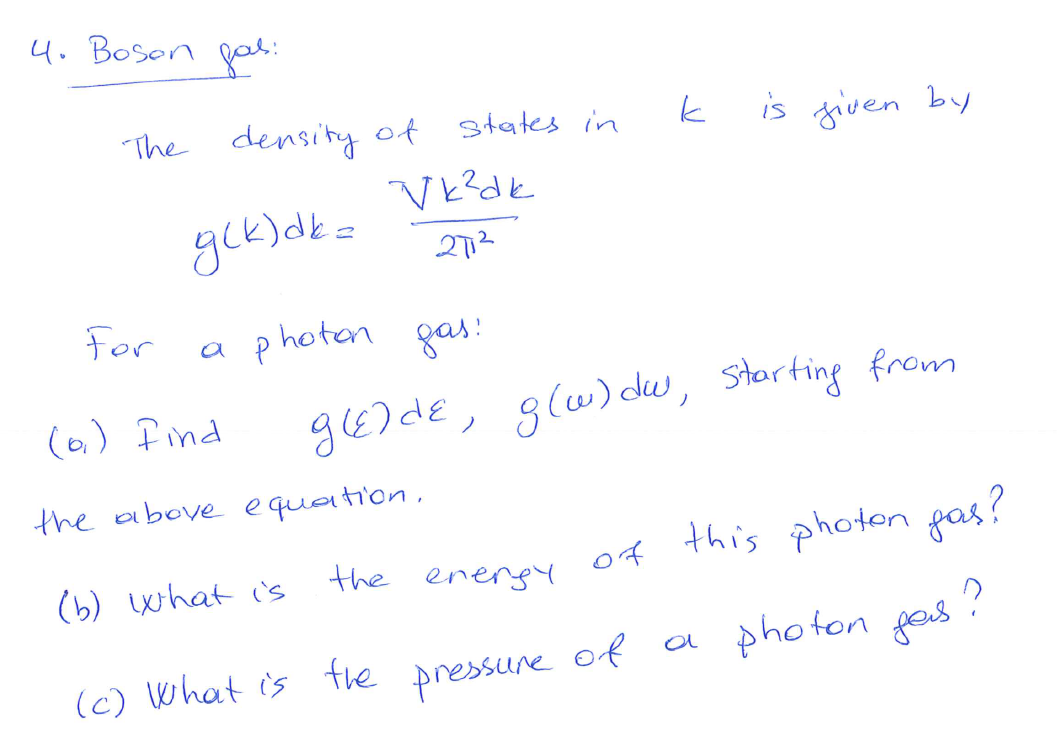 4. Boson gas:
The density of states in k is given by
g(k)dk = Vk²dk / 2π²
For a photon gas:
(a) Find g(ε)dε, g(ω)dω, starting from
the above equation.
(b) What is the energy of this photon gas?
(c) What is the pressure of a photon gas?